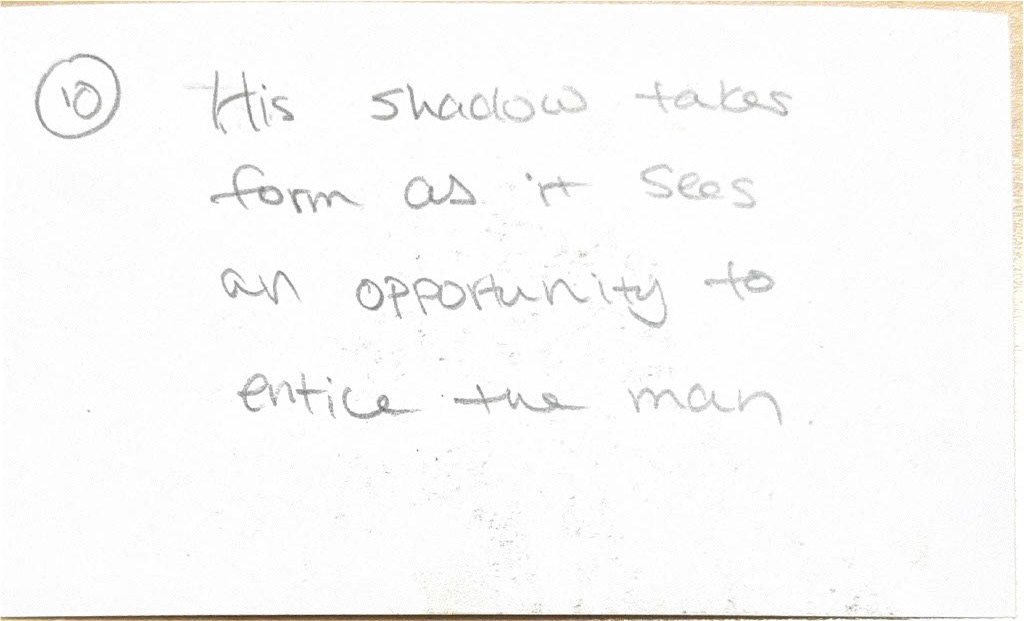 10 His shadow takes
form as it sees
an opportunity to
entice the man.